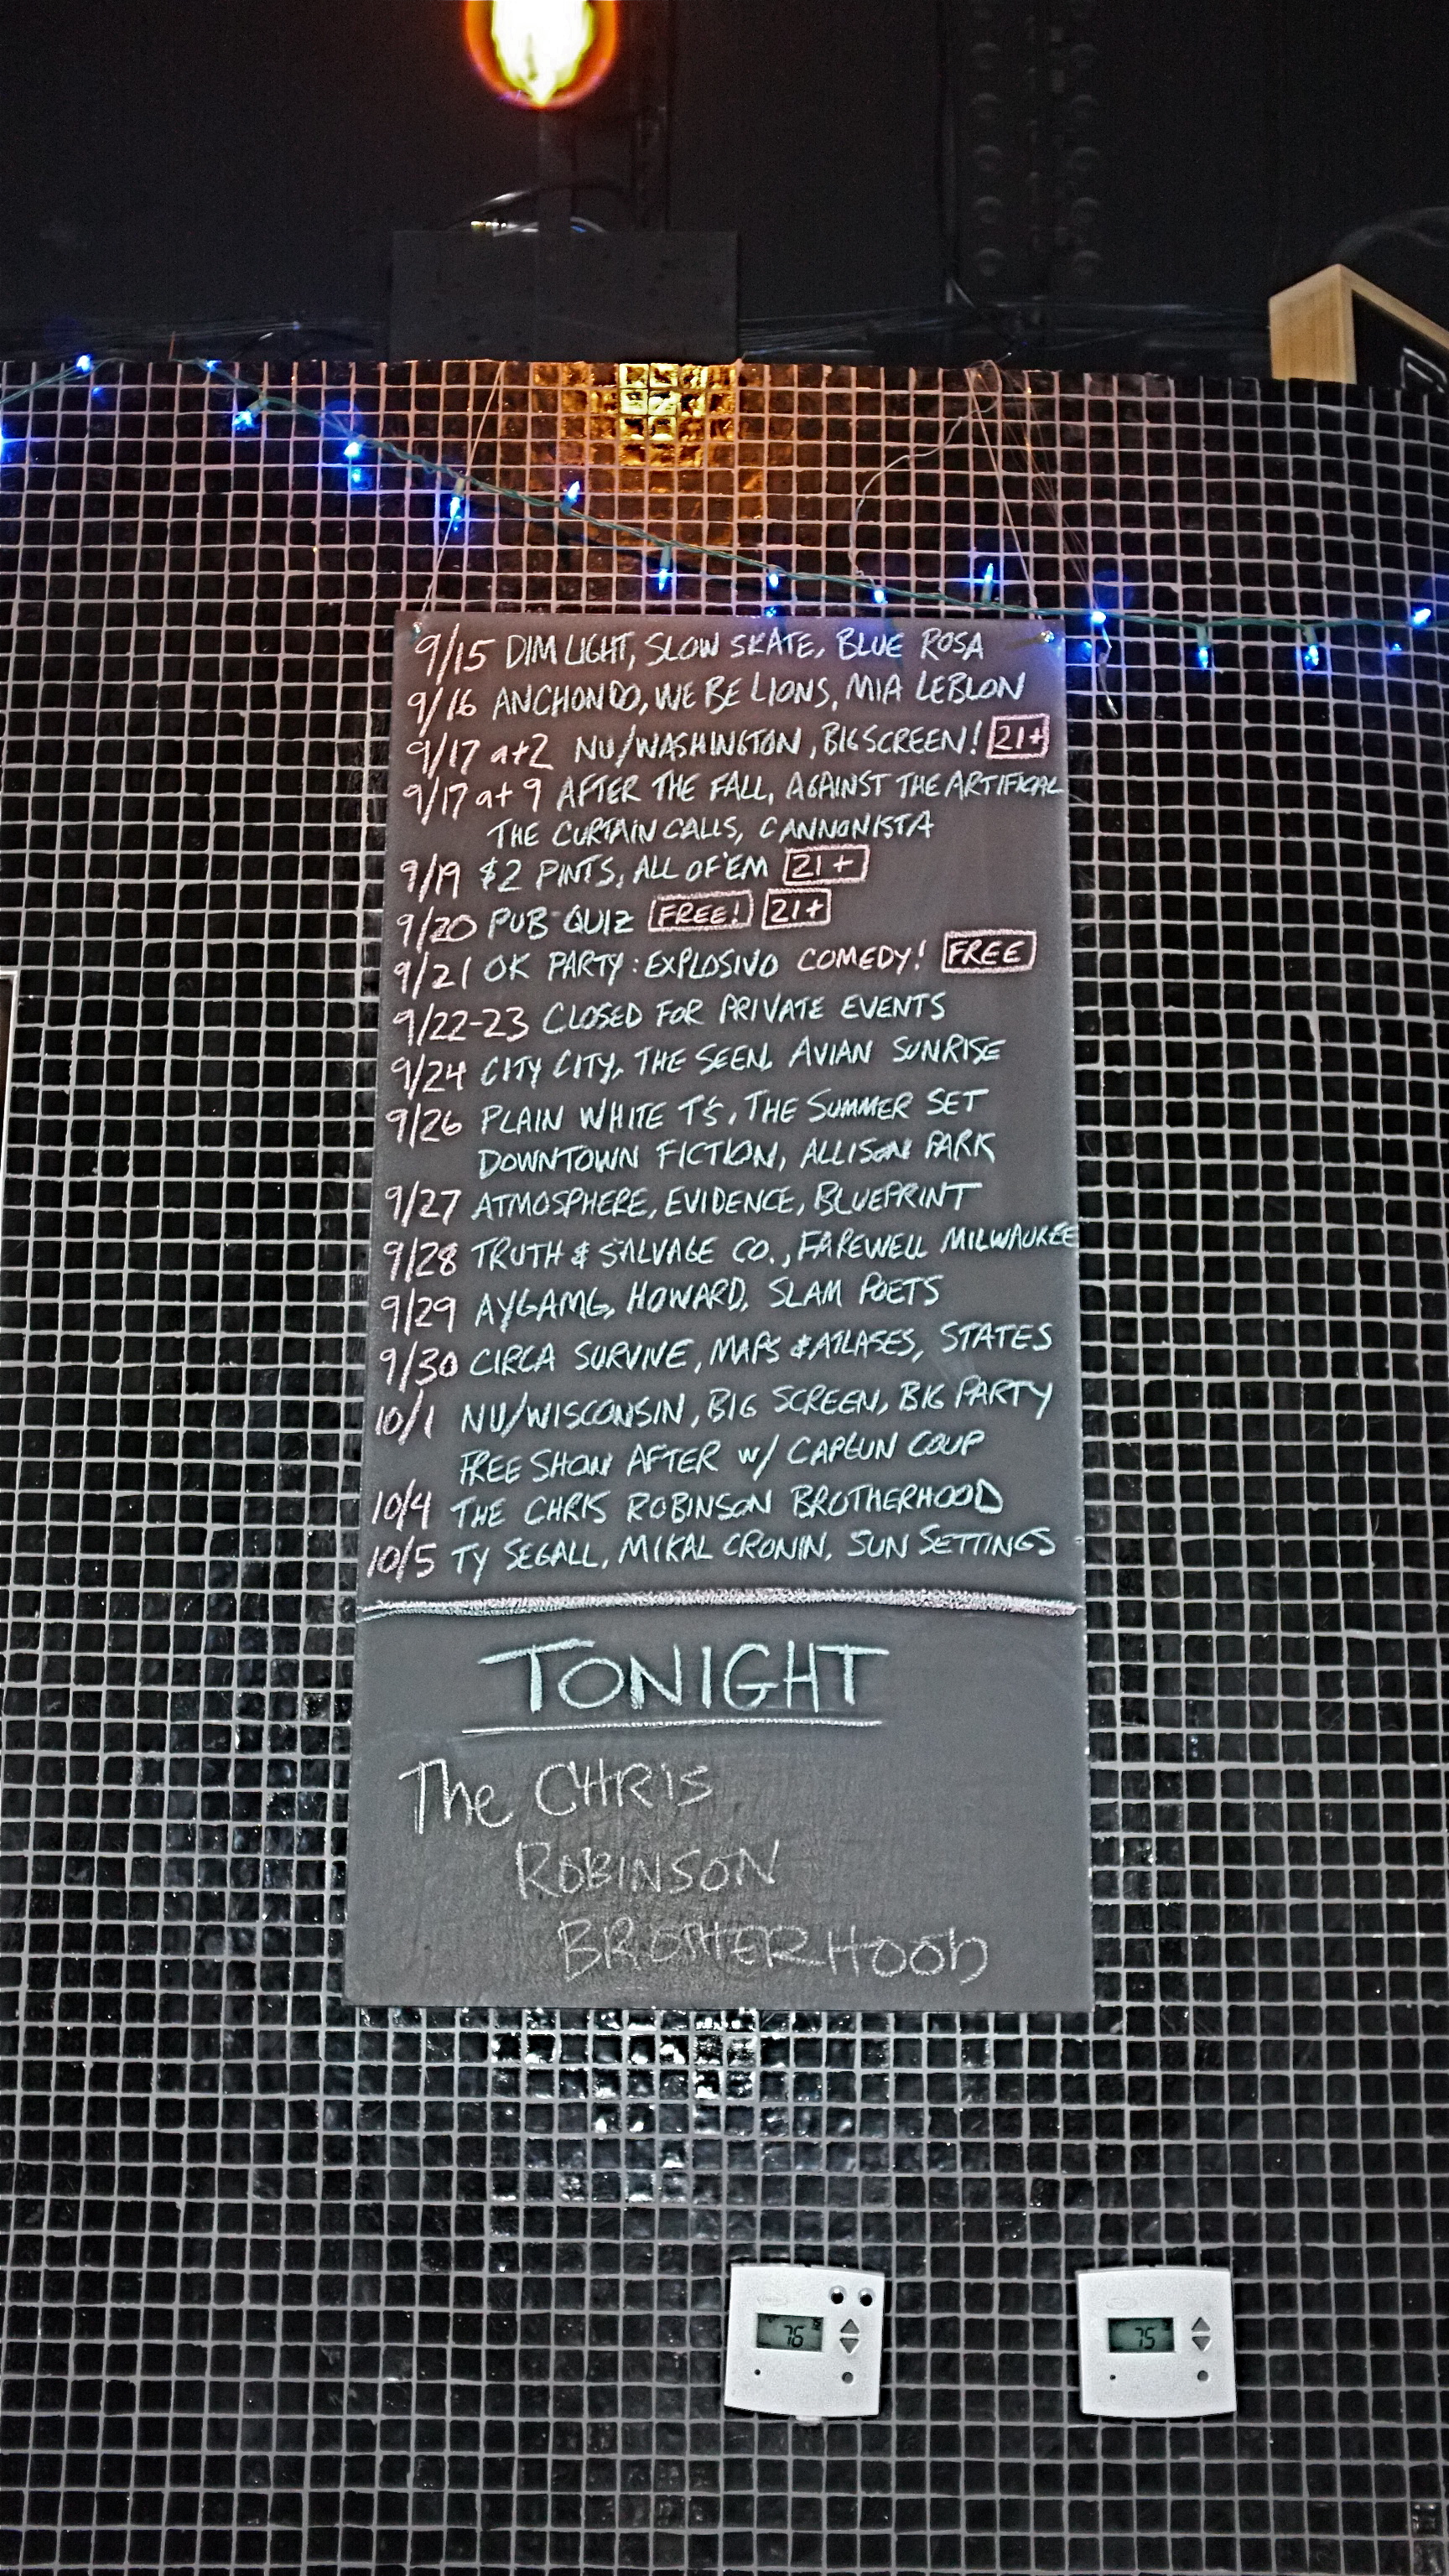 9/15 DIM LIGHT, SLOW SKATE, BLUE ROSA
9/16 ANCHONDO, WE BE LIONS, MIA LEBLON
9/17 at 2 NU/WASHINGTON, BIG SCREEN! 21+
9/17 at 9 AFTER THE FALL, AGAINST THE ARTIFICAL
THE CURTAIN CALLS, CANNONISTA
9/19 $2 PINTS, ALL OF 'EM 21+
9/20 PUB QUIZ FREE! 21+
9/21 OK PARTY: EXPLOSIVO COMEDY! FREE
9/22-23 CLOSED FOR PRIVATE EVENTS
9/24 CITY CITY, THE SEEN, AVIAN SUNRISE
9/26 PLAIN WHITE T'S, THE SUMMER SET
DOWNTOWN FICTION, ALLISON PARK
9/27 ATMOSPHERE, EVIDENCE, BLUEPRINT
9/28 TRUTH & SALVAGE CO., FAREWELL MILWAUKEE
9/29 AYGAMG, HOWARD, SLAM POETS
9/30 CIRCA SURVIVE, MAPS & ATLASES, STATES
10/1 NU/WISCONSIN, BIG SCREEN, BIG PARTY
FREE SHOW AFTER w/ CAPGUN COUP
10/4 THE CHRIS ROBINSON BROTHERHOOD
10/5 TY SEGALL, MIKAL CRONIN, SUN SETTINGS
TONIGHT
The CHRIS
ROBINSON
BROTHERHOOD
76
75